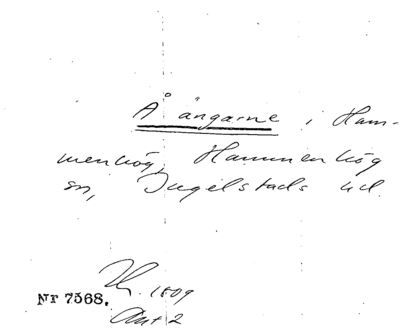 Å ängarne i Ham-
menhög, Hammenhög
sn, Ingelstads hd.
1809
Nr 7568.
Akt 2